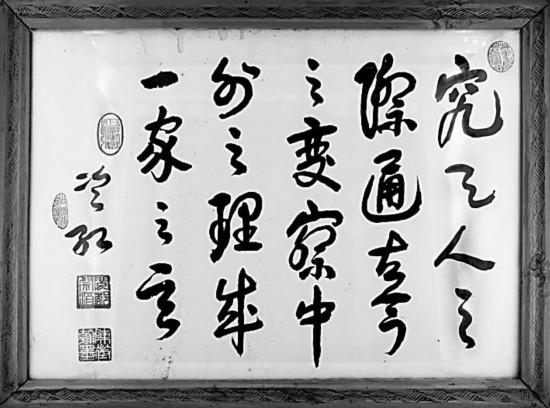 究天人之
際通古今
之變察中
外之理成
一家之言